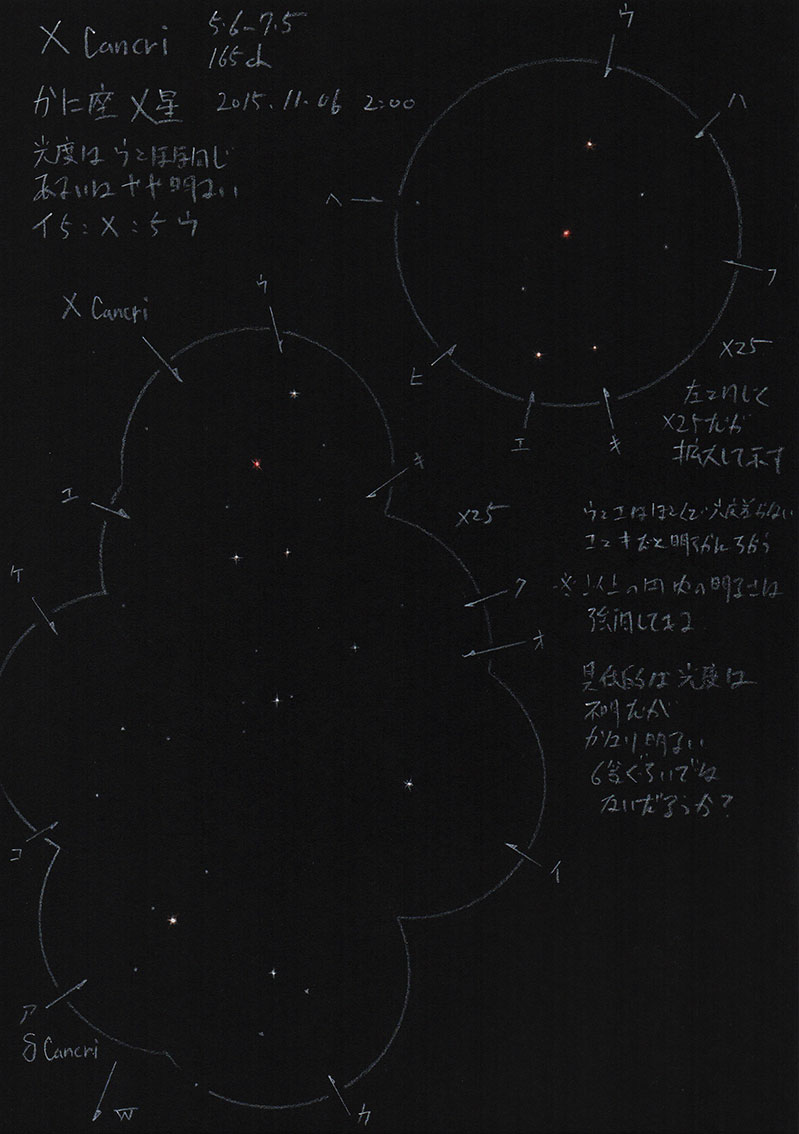 X Cancri
5.6-7.5
165d
かに座 X星 2015.11.06 2:00
光度はウとほぼ同じ
あるいはやや明るい
イ5:X:5ウ
ウ
ハ
ヘ
フ
ヒ
エ
キ
X25
左と同じく
X25だが
拡大して示す
X Cancri
ウ
エ
キ
X25
ケ
ク
オ
コ
イ
ア
δ Cancri
W
カ
ウとエはほとんど光度差がない
エとキだと明らかにちがう
の明るさは
強調してある
具体的な光度は
不明だが
かなり明るい
6等ぐらいでは
ないだろうか?